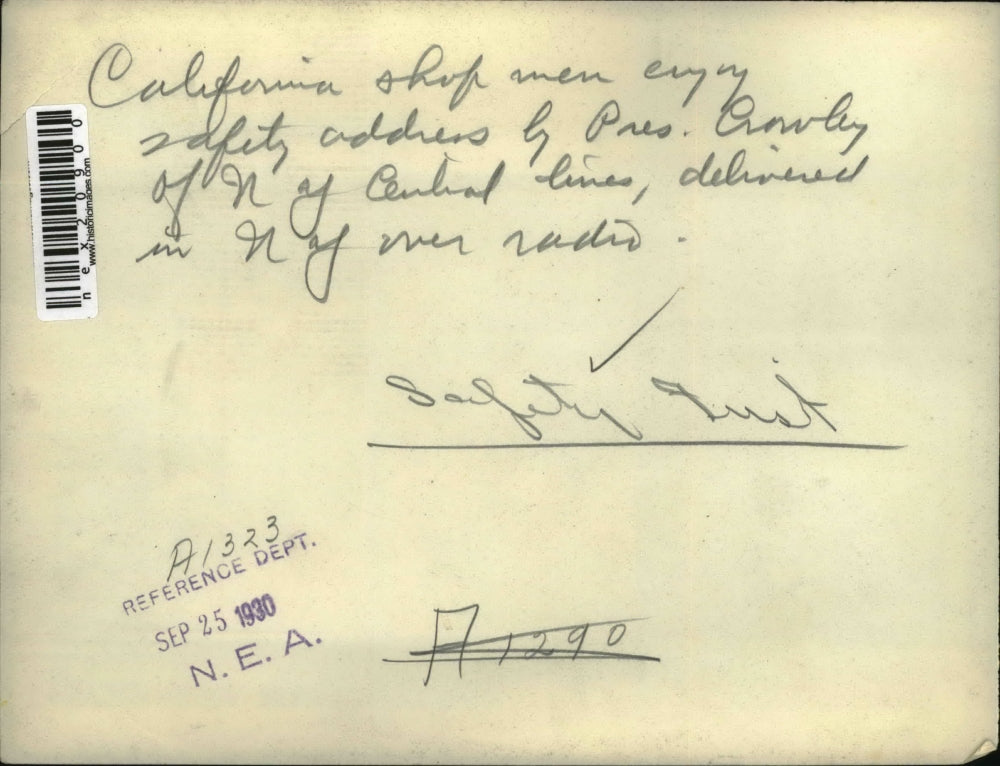 California shop men enjoy
safety address by Pres. Crowley
of N Y Central lines, delivered
in N Y over radio.
Safety First
A1323
REFERENCE DEPT.
SEP 25 1930
N. E. A.
A1290
nex2090 0
www.historicimages.com